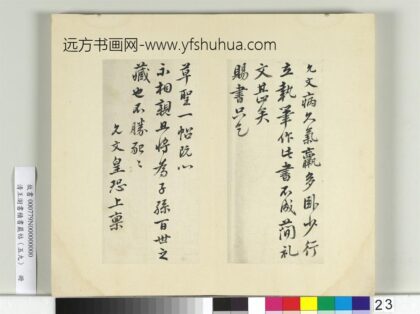 远方书画网-www.yfshuhua.com
允文病久氣羸多卧少行
立執筆作此書不成簡礼
文甚矣
賜書只乞
草聖一帖既心
示相親且將為子孫百世之
藏也不勝懇〻
允文皇恐上稟
故書 000779N00000000
清王澍書積書巖帖（五九） 冊
23